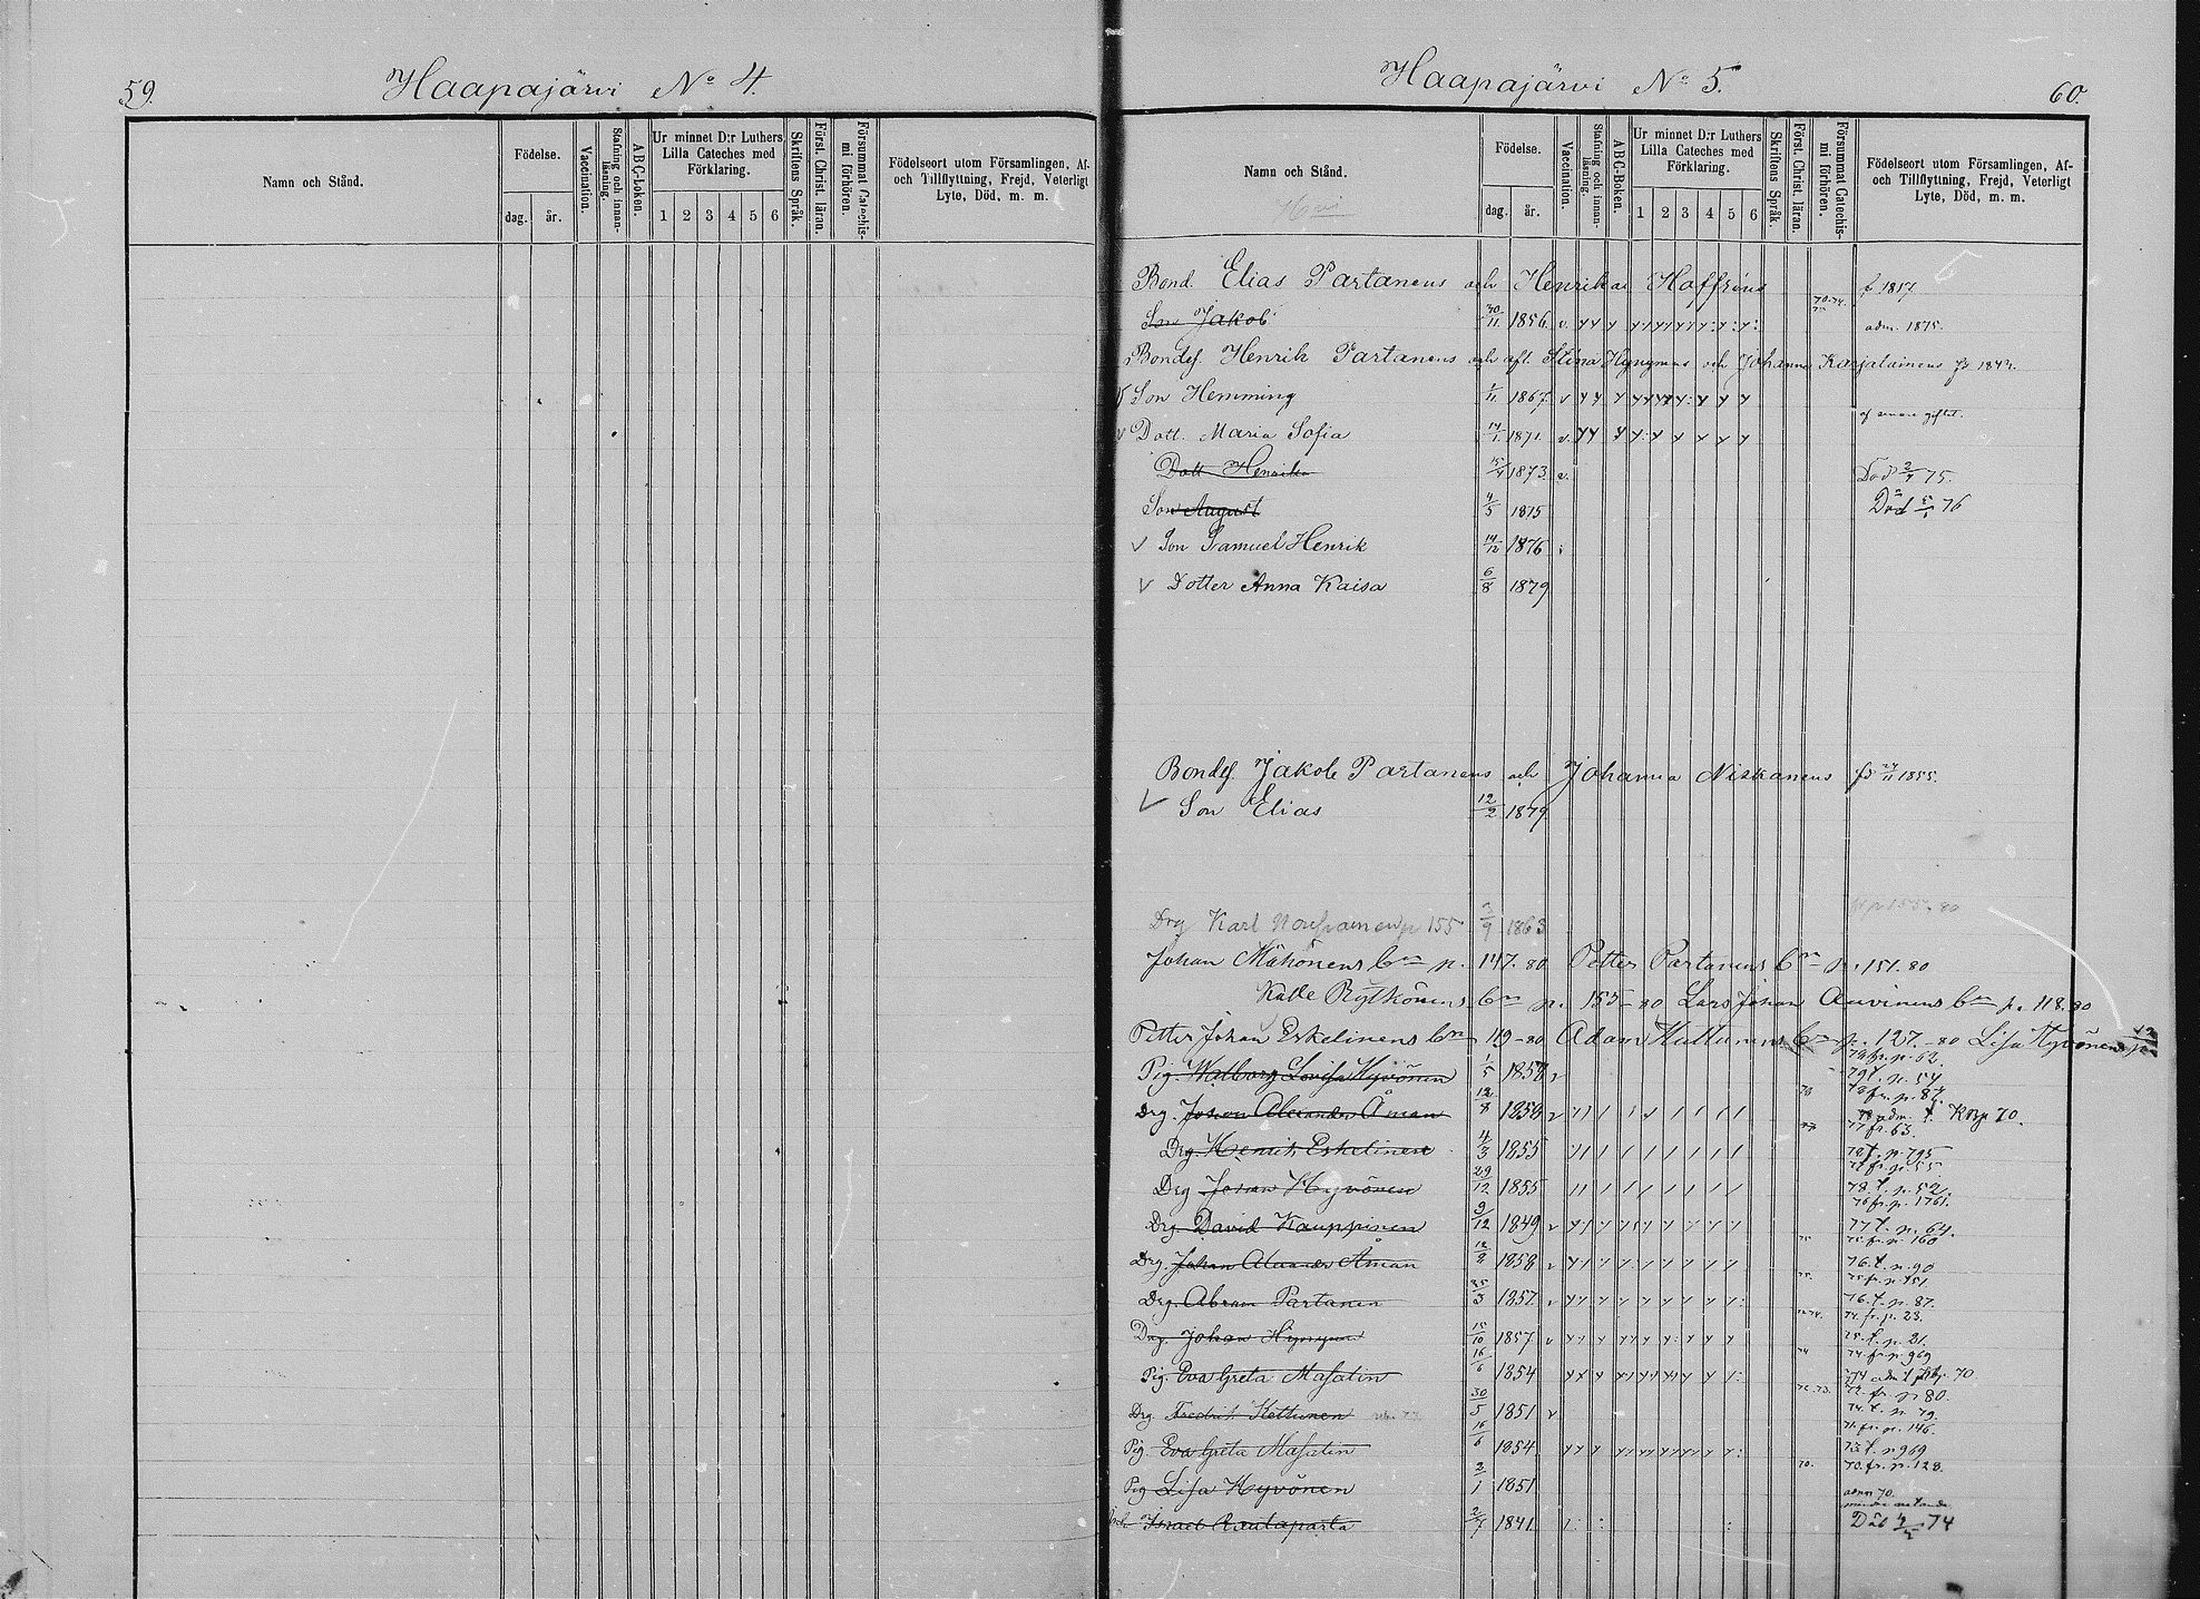 59.
Haapajärvi No 4.
Namn och Stånd.
Födelse.
dag.
år.
Vaccination.
Stafning och innan-läsning.
ABC-Boken.
Ur minnet D:r Luthers Lilla Cateches med Förklaring.
1 2 3 4 5 6
Skriftens Språk.
Först. Christ. läran.
Försummat Catechis-mi förhören.
Födelseort utom Församlingen, Af- och Tillflyttning, Frejd, Veterligt Lyte, Död, m. m.
Haapajärvi No 5.
60.
Namn och Stånd.
Födelse.
dag.
år.
Vaccination.
Stafning och innan-läsning.
ABC-Boken.
Ur minnet D:r Luthers Lilla Cateches med Förklaring.
1 2 3 4 5 6
Skriftens Språk.
Först. Christ. läran.
Försummat Catechis-mi förhören.
Födelseort utom Församlingen, Af- och Tillflyttning, Frejd, Veterligt Lyte, Död, m. m.
Bond. Elias Partanens och Henrika Hoffréns f. 1851.
Son Jakob 30/11 1856. v. adm. 1875.
Bondes. Henrik Partanens och aft. Stina Hynynens och Johanna Karjalainens
Son Hemming 1/11 1867. v af senare giftet.
Dott. Maria Sofia 14/1 1871. v.
Dott Henrika 15/4 1873. v. Död 75.
Son August 4/5 1875 Död 76
v Son Samuel Henrik 14/12 1876
v Dotter Anna Kaisa 6/8 1879
Bondes. Jakob Partanens och Johanna Niskanens 1855.
v Son Elias 12/2 1879
Drg Karl p 155 3/9 1863
Johan Mähönens p. 147. 80 Petter Partanens p. 151. 80
Kalle Rytkönens p. 155-80 Lars Johan Auvinens p. 118. 80
Petter Johan Eskelinens 119-80 Adam Huttunens p. 127.-80 Lisa Hyvönens
79 fr. p. 62.
Pig. Walborg Lovisa Hyvönen 1/5 1858 v 79 t. p. 54
78 fr. p. 87.
Drg. Johan Alexander Åman 12/8 1858 v 78 adm.
77 fr. 63.
Drg. Henrik Eskelinen 4/3 1855 78 t. p. 795
77 fr. p. 55
Drg Johan Hyvönen 29/12 1855 78. t. p. 52.
76 fr. p. 1761.
Drg. David Kauppinen 9/12 1849 v 77 t. p. 64.
75. fr. p. 160
Drg. Johan Alexander Åman 12/8 1858 v 76. t. p. 90
75 fr. p. 151.
Drg. Abram Partanen 25/3 1857. v 76. t. p. 87.
74. fr. p. 23.
Drg. Johan Hynynen 15/10 1857 v 75. t. p. 21.
74. fr. p. 969
Pig. Eva Greta Masalin 16/6 1854
72. fr. p 80.
Drg. Fredrik Kettunen 30/5 1851 v 74. t. p. 79.
71. fr. p. 146.
Pig. Eva Greta Masalin 16/6 1854 t. p 969
70. 70. fr. p. 128.
Pig Lisa Hyvönen 3/1 1851
adm 70.
Israel Rautaparta 2/7 1841. Död 74